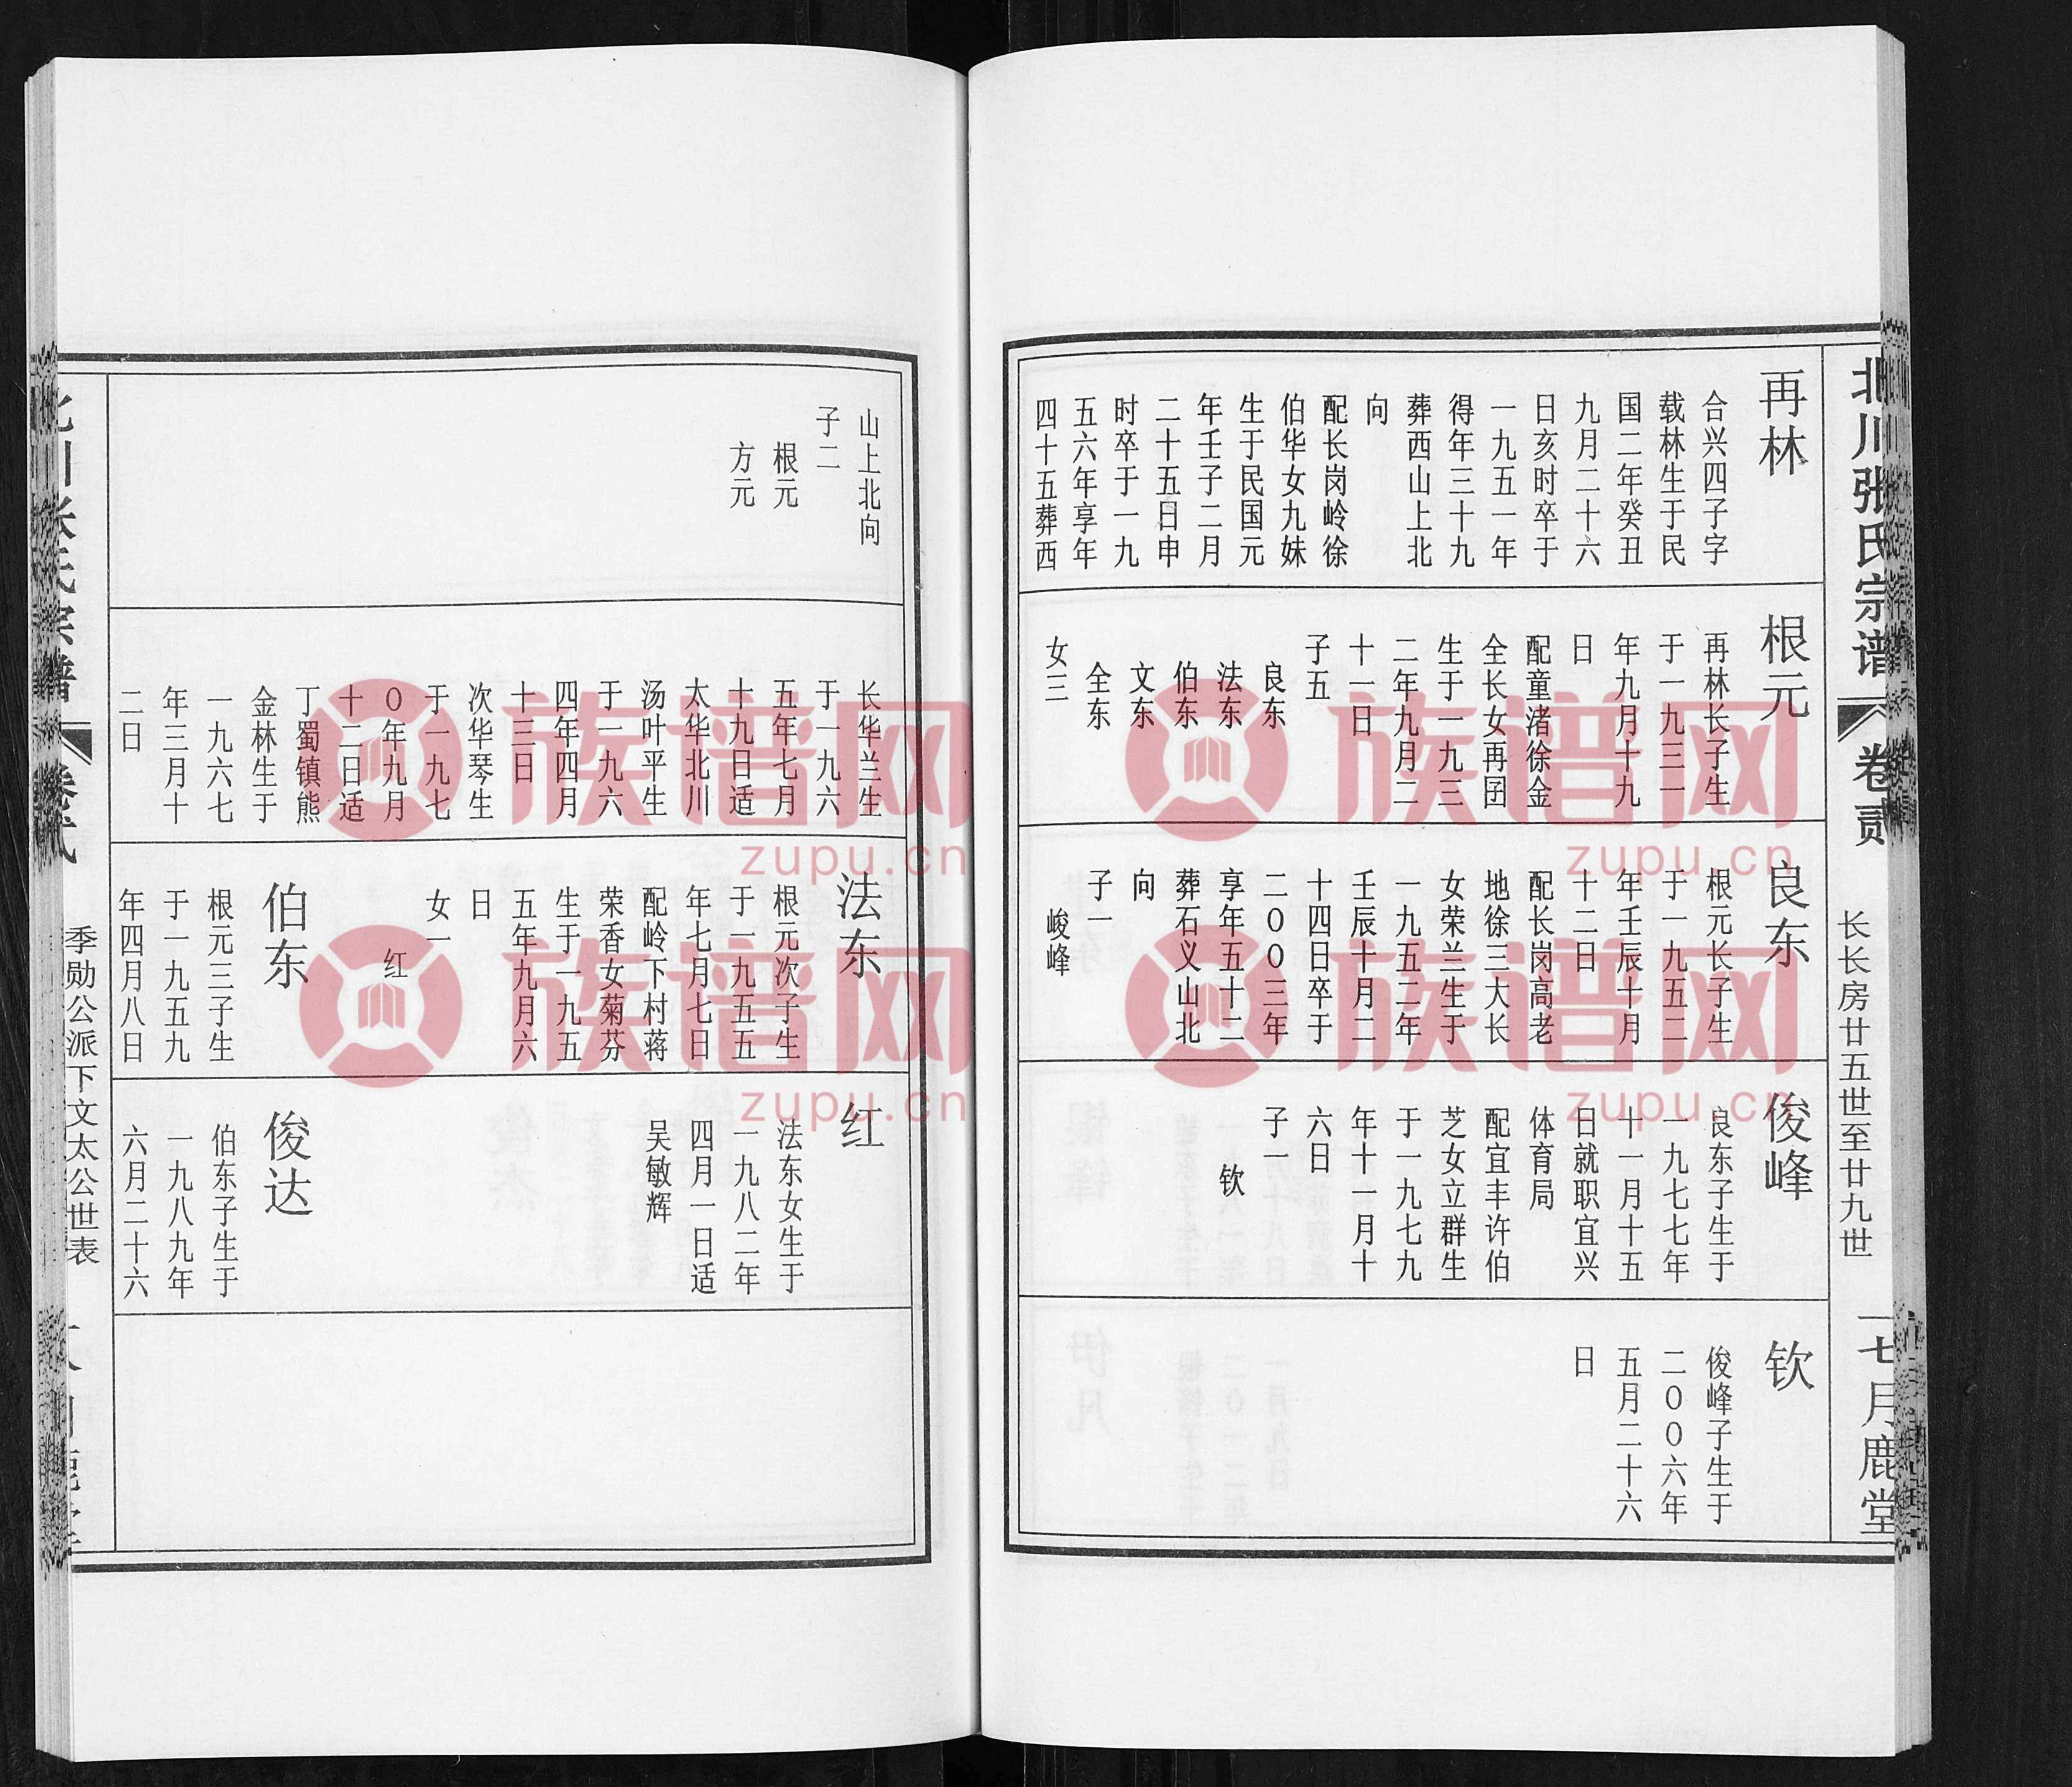 北川张氏宗谱
卷贰
长长房廿五世至廿九世
一七
月鹿堂
再林
合兴四子字
载林生于民
国二年癸丑
九月二十六
日亥时卒于
一九五一年
得年三十九
葬西山上北
向
配长岗岭徐
伯华女九妹
生于民国元
年壬子二月
二十五日申
时卒于一九
五六年享年
四十五葬西
根元
再林长子生
于一九三一
年九月十九
日
配童渚徐金
全长女再囝
生于一九三
二年九月二
十一日
子五
良东
法东
伯东
文东
全东
女三
良东
根元长子生
于一九五二
年壬辰十月
十二日
配长岗高老
地徐三大长
女荣兰生于
一九五二年
壬辰十月二
十四日卒于
二〇〇三年
享年五十二
葬石义山北
向
子一
峻峰
俊峰
良东子生于
一九七七年
十一月十五
日就职宜兴
体育局
配宜丰许伯
芝女立群生
于一九七九
年十一月十
六日
子一
钦
钦
俊峰子生于
二〇〇六年
五月二十六
日
山上北向
子二
根元
方元
长华兰生
于一九六
五年七月
十九日适
太华北川
汤叶平生
于一九六
四年四月
十三日
次华琴生
于一九七
〇年九月
十二日适
丁蜀镇熊
金林生于
一九六七
年三月十
二日
法东
根元次子生
于一九五五
年七月七日
配岭下村蒋
荣香女菊芬
生于一九五
五年九月六
日
女一
红
伯东
根元三子生
于一九五九
年四月八日
红
法东女生于
一九八二年
四月一日适
吴敏辉
俊达
伯东子生于
一九八九年
六月二十六
季勋公派下文太公世表
族谱网
zupu.cn
族谱网
zupu.cn
族谱网
zupu.cn
族谱网
zupu.cn